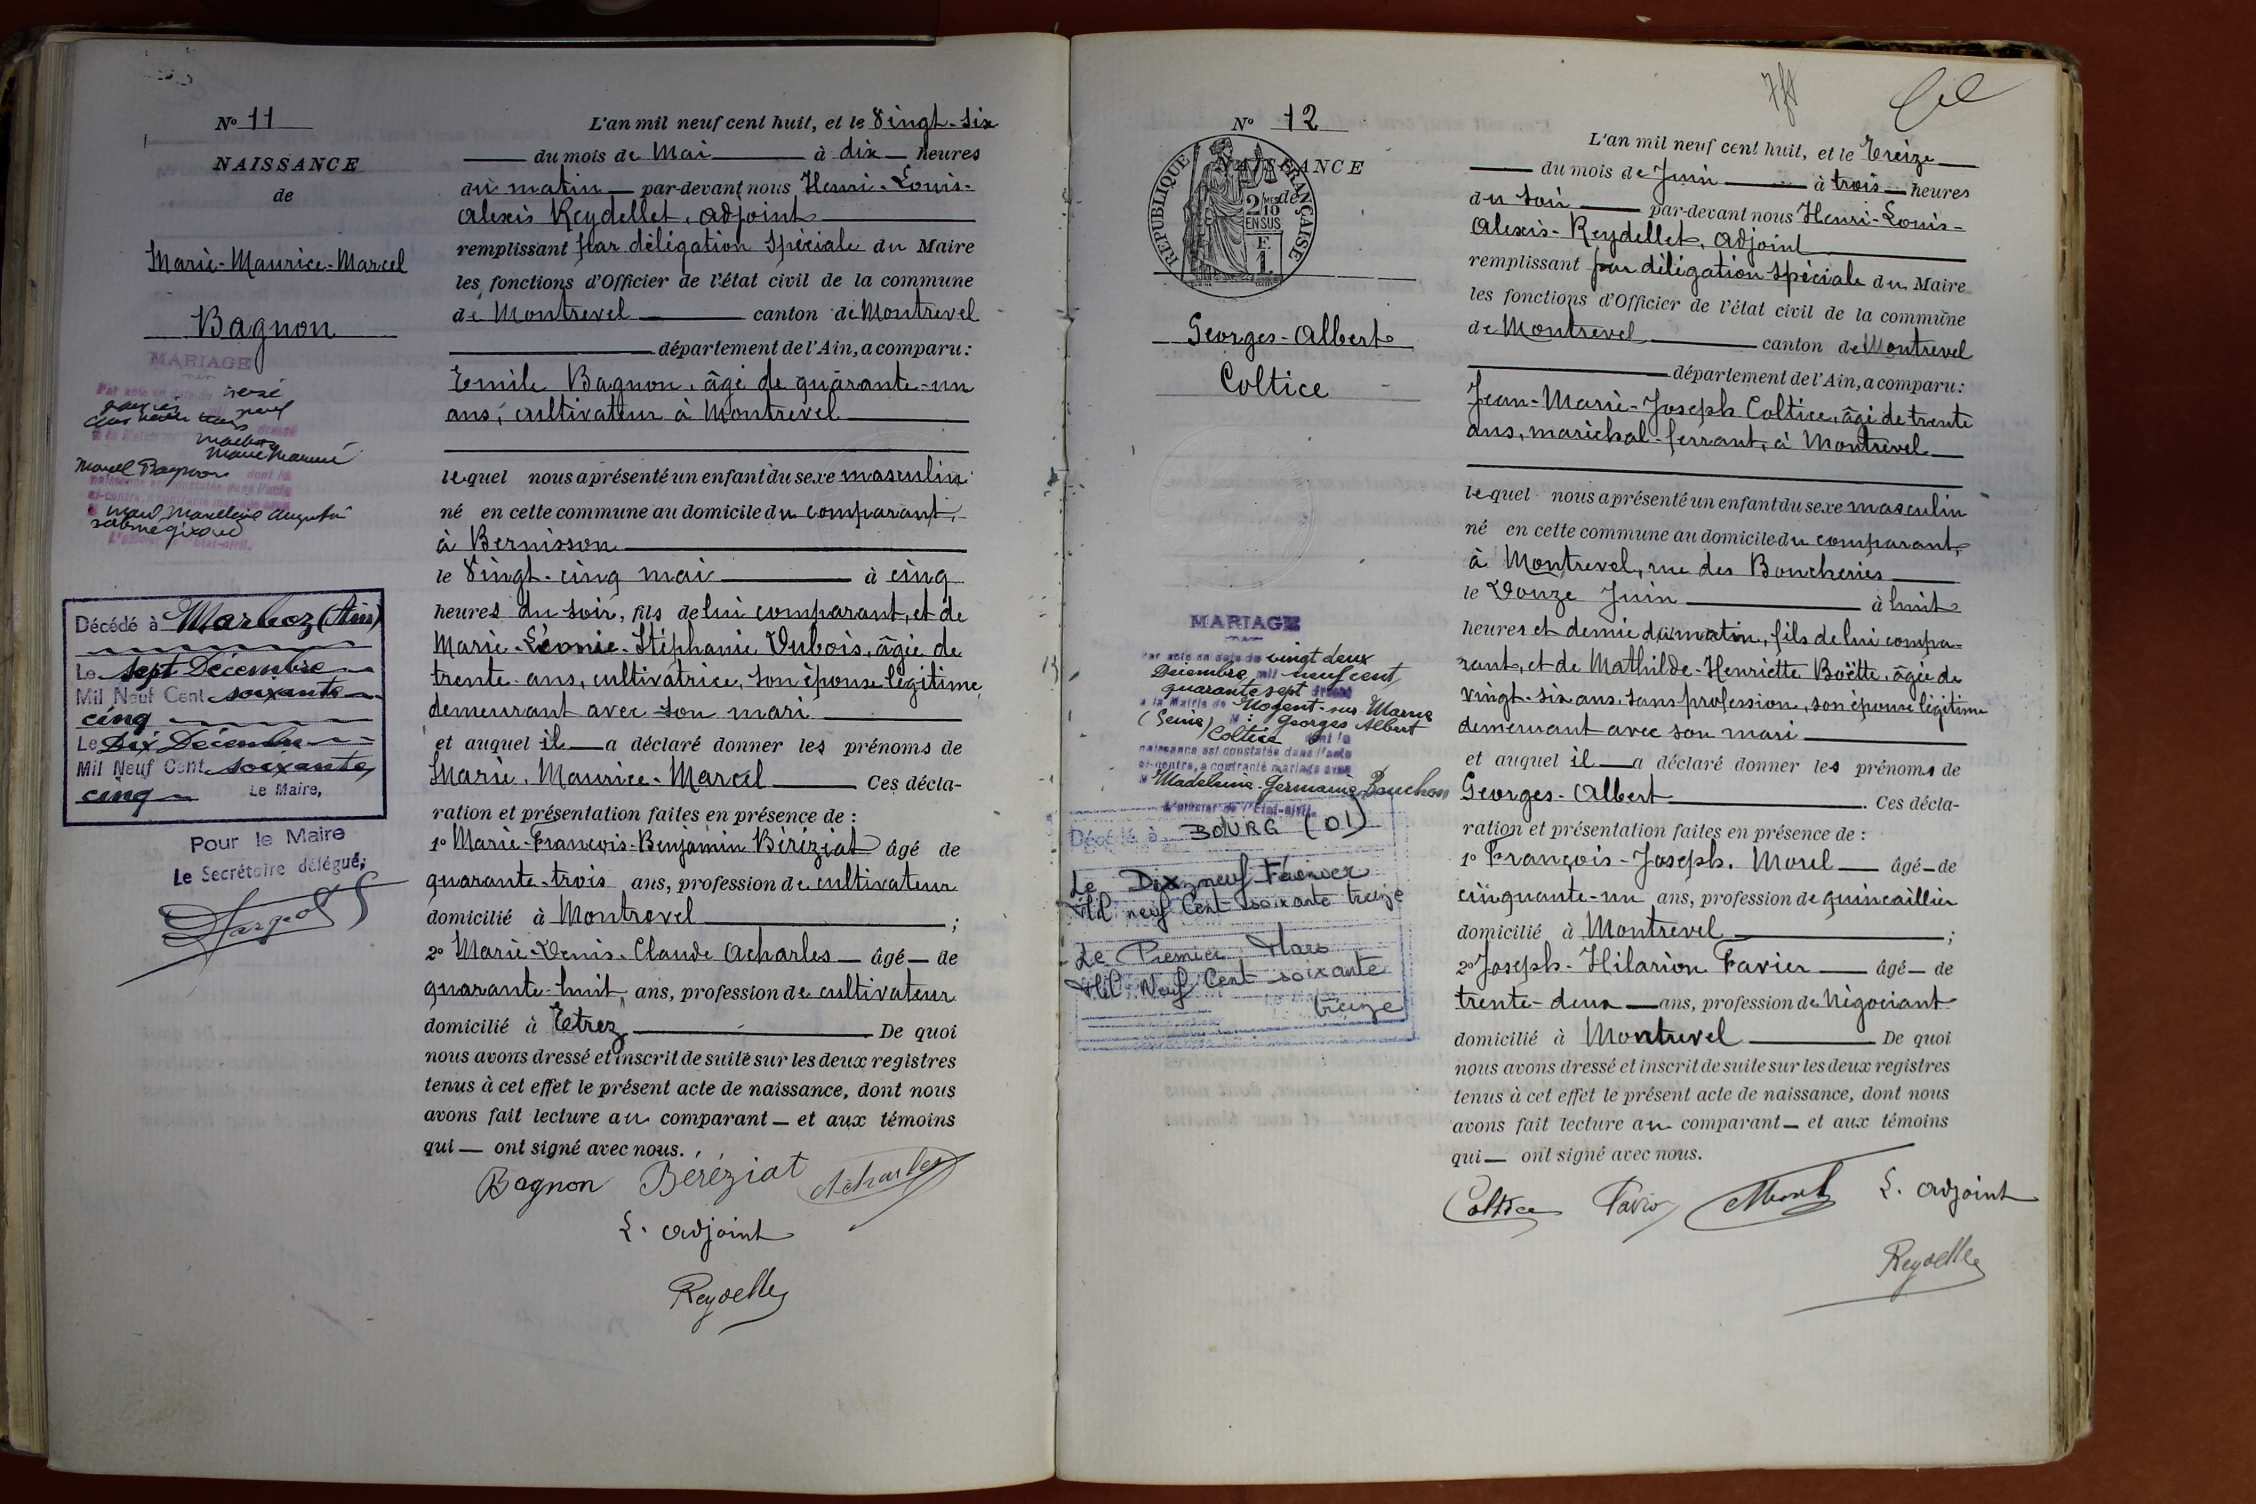 N° 11
NAISSANCE
de
Marie-Maurice-Marcel
Bagnon
MARIAGE
Marcel Bagnon
Décédé à Marboz (Ain)
Le sept Décembre
Mil Neuf Cent soixante
cinq
Le Dix Décembre
Mil Neuf Cent soixante
cinq Le Maire,
Pour le Maire
Le Secrétaire délégué,
L'an mil neuf cent huit, et le Vingt-six
du mois de Mai à dix heures
du matin par-devant nous Henri-Louis-
Alexis Reydellet, adjoint
remplissant par délégation spéciale du Maire
les fonctions d'Officier de l'état civil de la commune
de Montrevel canton de Montrevel
département de l'Ain, a comparu:
Emile Bagnon, âgé de quarante-un
ans, cultivateur à Montrevel
lequel nous a présenté un enfant du sexe masculin
né en cette commune au domicile du comparant,
à Bernisson
le Vingt-cinq mai à cinq
heures du soir, fils de lui comparant, et de
Marie-Léonie-Stéphanie Dubois, âgée de
trente ans, cultivatrice, son épouse légitime,
demeurant avec son mari
et auquel il a déclaré donner les prénoms de
Marie-Maurice-Marcel Ces décla-
ration et présentation faites en présence de :
1° Marie-François-Benjamin Béréziat âgé de
quarante-trois ans, profession de cultivateur
domicilié à Montrevel ;
2° Marie-Denis-Claude Acharles âgé de
quarante-huit, ans, profession de cultivateur
domicilié à Etrez De quoi
nous avons dressé et inscrit de suite sur les deux registres
tenus à cet effet le présent acte de naissance, dont nous
avons fait lecture au comparant et aux témoins
qui ont signé avec nous.
Bagnon Béréziat Acharles
L. adjoint
Reydellet
N° 12
NAISSANCE
de
REPUBLIQUE FRANÇAISE
2/10 EN SUS
F. 1.
Georges-Albert
Coltice
MARIAGE
Par acte en date du vingt deux
Décembre mil neuf cent
quarante sept dressé
à la Mairie de Nogent-sur Marne
(Seine) M : Georges Albert
Coltice dont la
naissance est constatée dans l'acte
ci-contre, a contracté mariage avec
M Madeleine-Germaine
L'officier de l'État-civil,
Décédé à BOURG (01)
Le Dix neuf Février
Mil neuf Cent soixante treize
Le Premier Mars
Mil Neuf Cent soixante
treize
L'an mil neuf cent huit, et le Treize
du mois de Juin à trois heures
du soir par-devant nous Henri-Louis-
Alexis-Reydellet, adjoint
remplissant par délégation spéciale du Maire
les fonctions d'Officier de l'état civil de la commune
de Montrevel canton de Montrevel
département de l'Ain, a comparu:
Jean-Marie-Joseph Coltice, âgé de trente
ans, maréchal-ferrant, à Montrevel
lequel nous a présenté un enfant du sexe masculin
né en cette commune au domicile du comparant,
à Montrevel, rue des Boucheries
le Douze Juin à huit
heures et demie du matin, fils de lui compa-
rant, et de Mathilde-Henriette Boëtte, âgée de
vingt-six ans, sans profession, son épouse légitime
demeurant avec son mari
et auquel il a déclaré donner les prénoms de
Georges-Albert Ces décla-
ration et présentation faites en présence de :
1° François-Joseph. Morel âgé de
cinquante-un ans, profession de quincaillier
domicilié à Montrevel ;
2° Joseph-Hilarion Favier âgé de
trente-deux ans, profession de Négociant
domicilié à Montrevel De quoi
nous avons dressé et inscrit de suite sur les deux registres
tenus à cet effet le présent acte de naissance, dont nous
avons fait lecture au comparant et aux témoins
qui ont signé avec nous.
Coltice Favier Morel L. adjoint
Reydellet